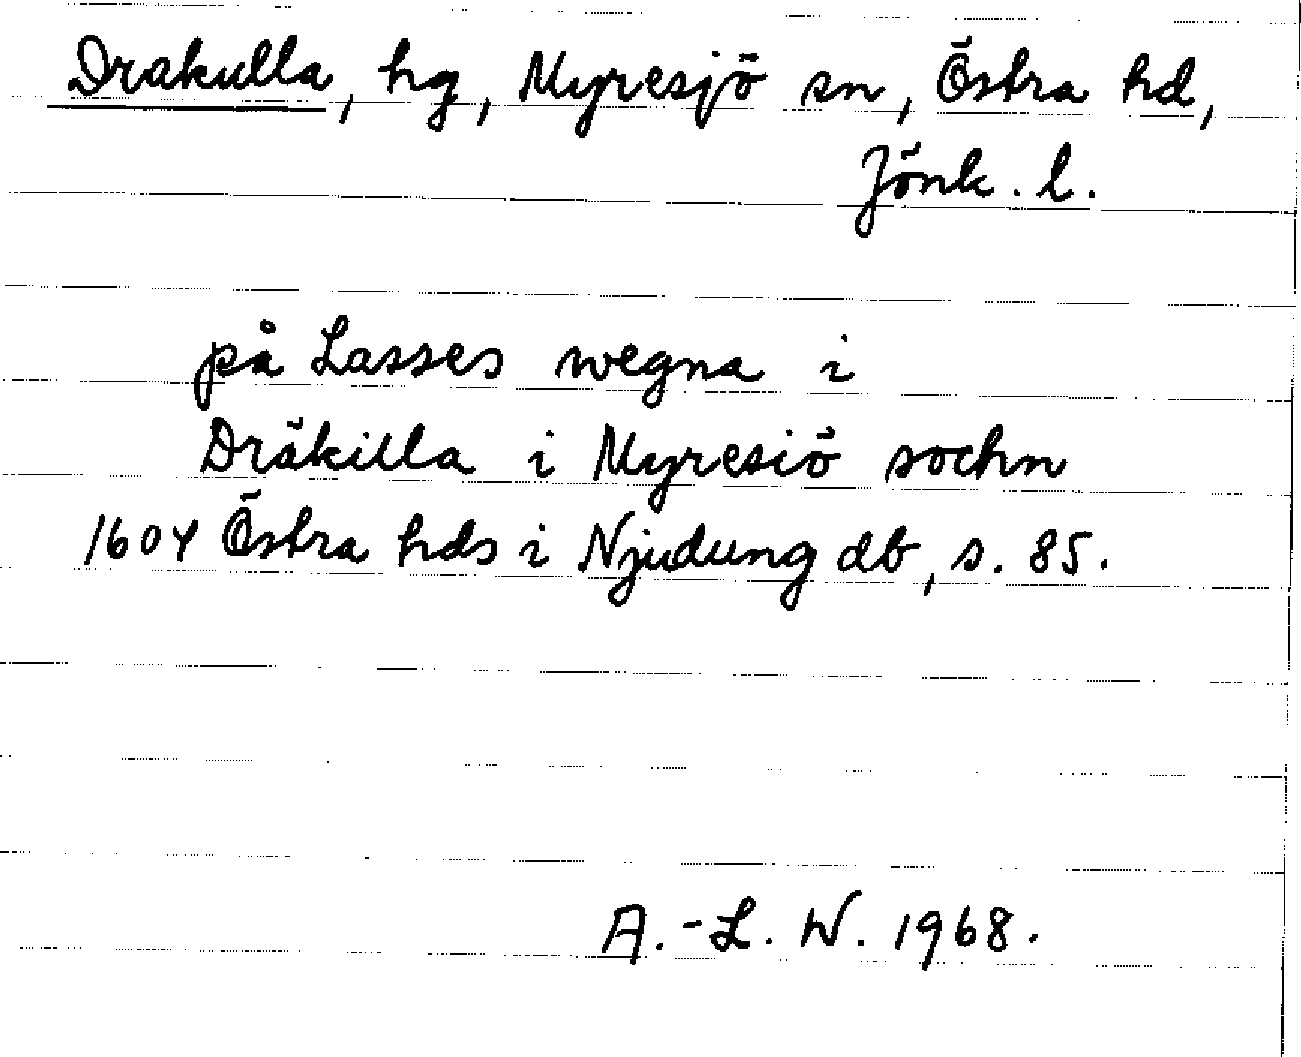 Drakulla, hg, Myresjö sn, Östra hd,
Jönk. l.
på Lasses wegna i
Dräkilla i Myresiö sochn
1604 Östra hds i Njudung db, s. 85.
A.-L. W. 1968.